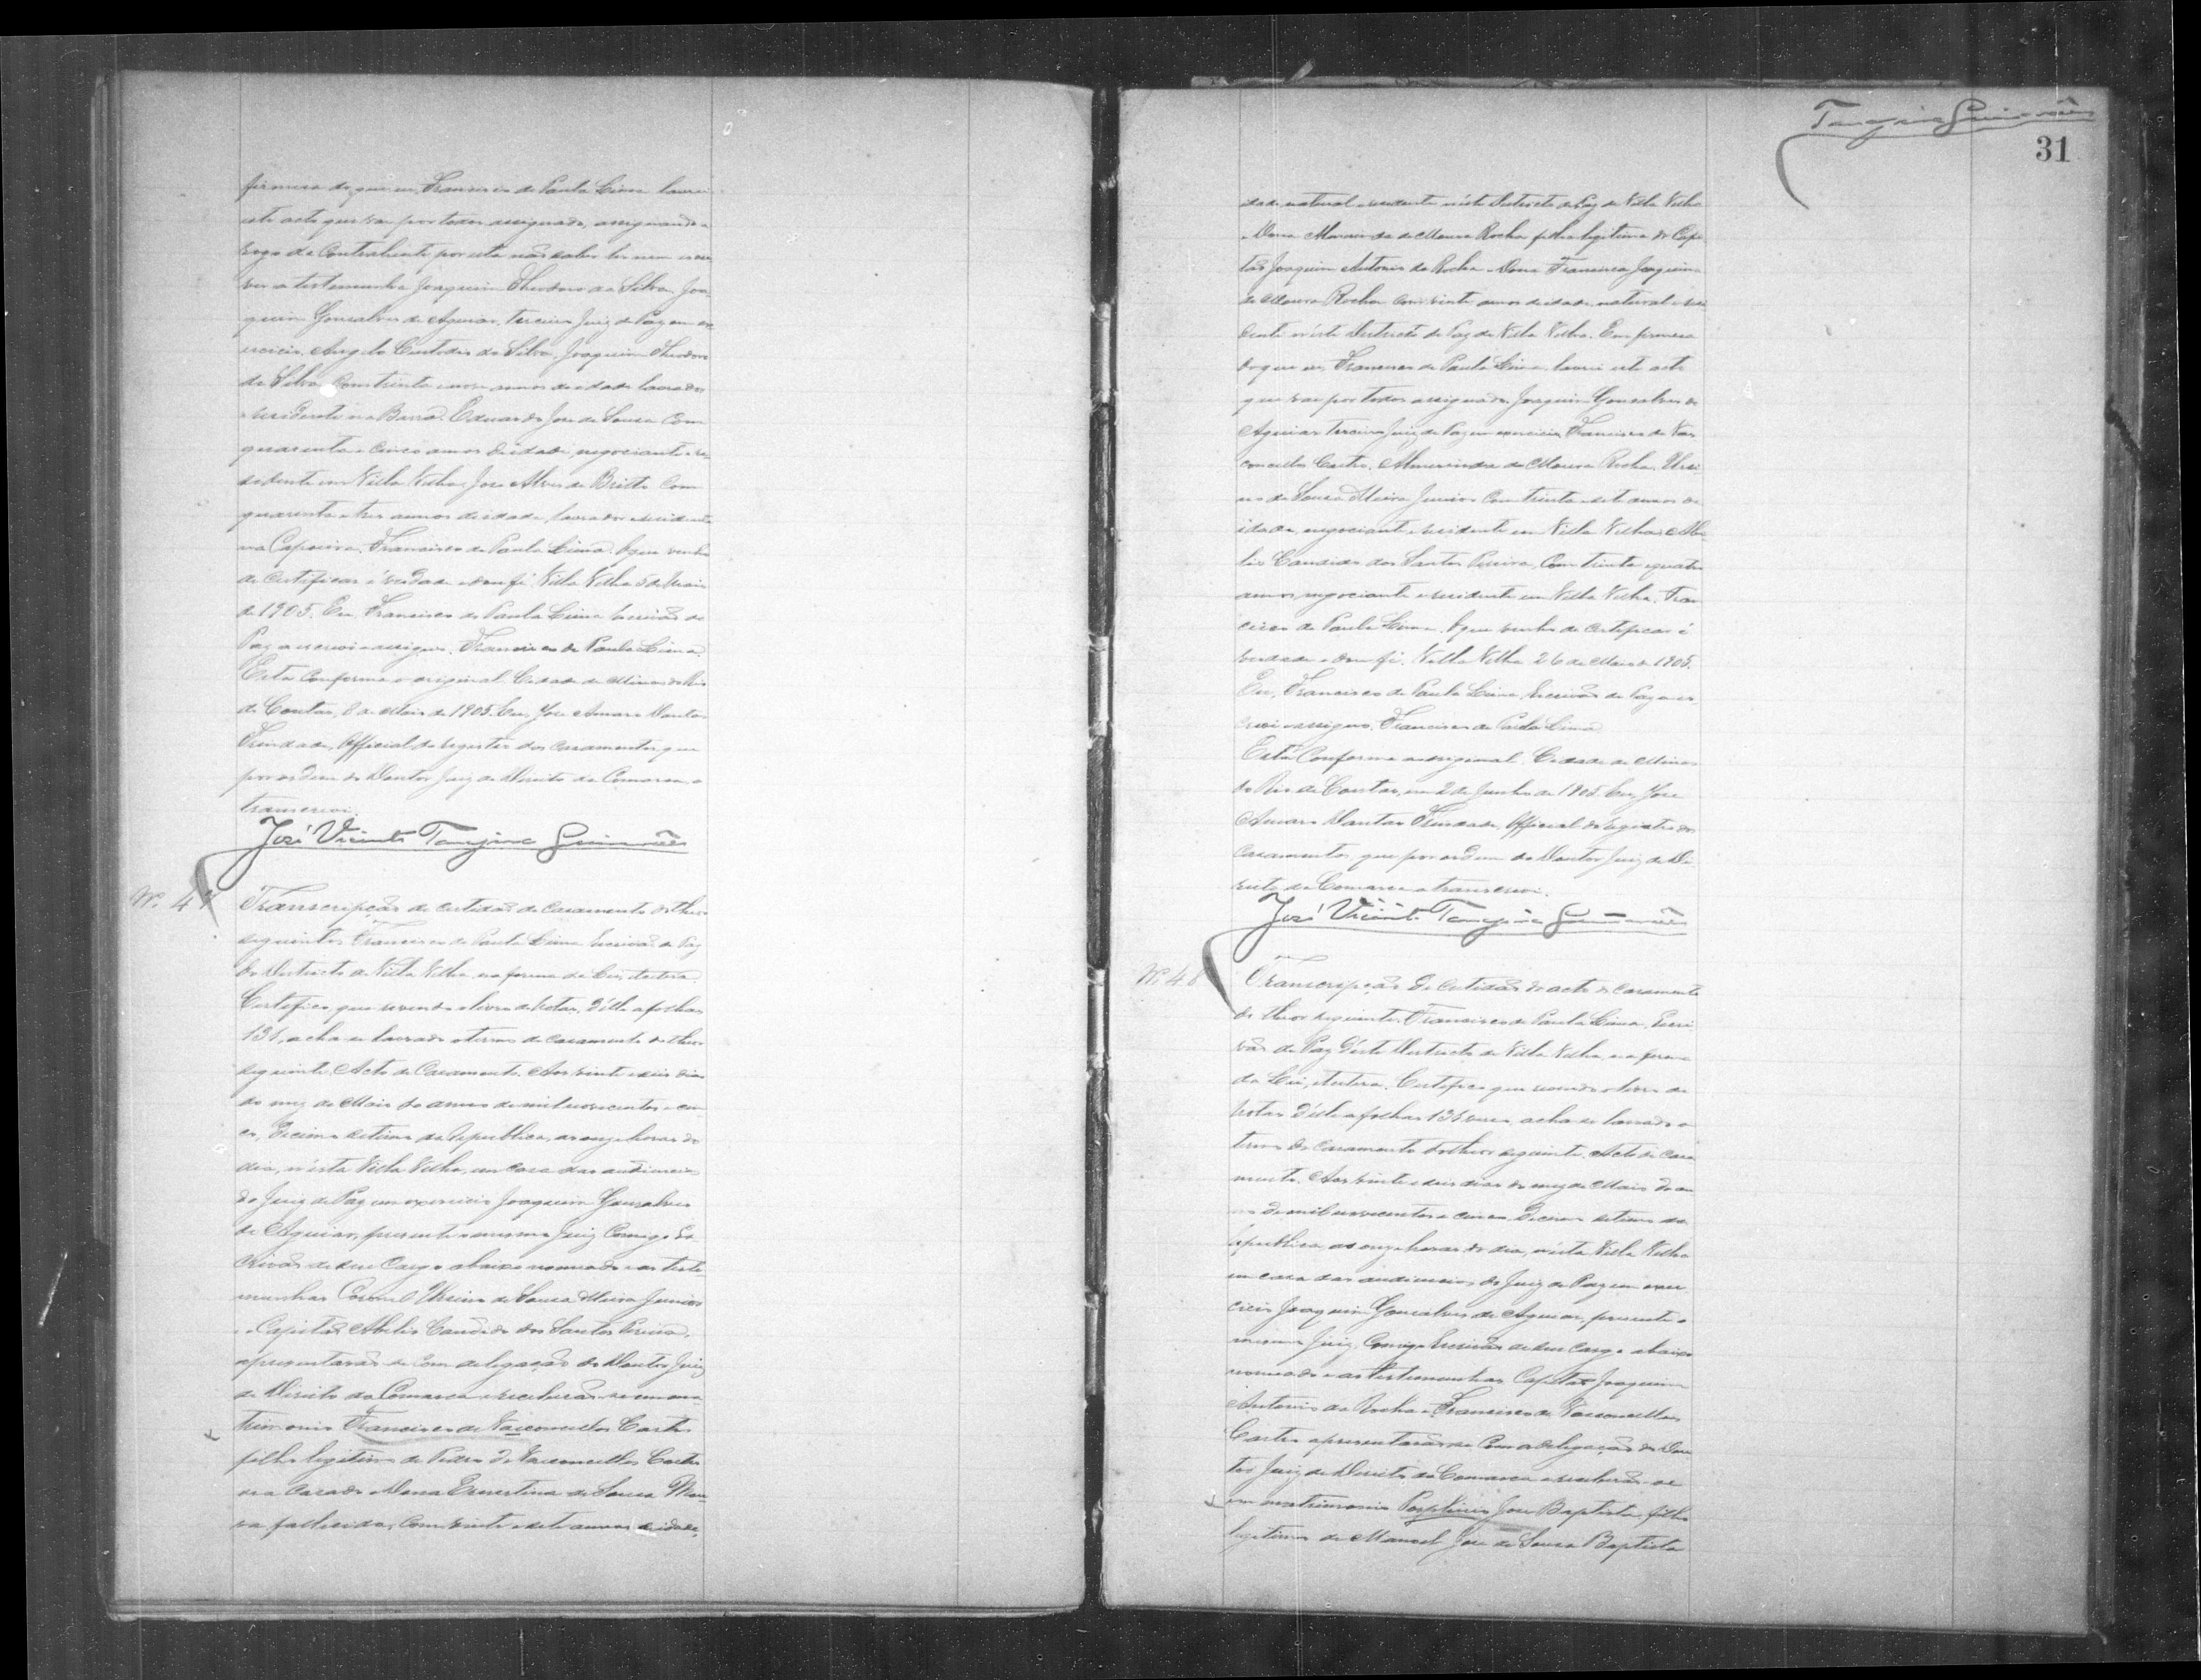 firmesa do que eu, Francisco de Paula Lima lavrei
este acto que vae por todos assignado, assignando a
rogo da Contrahente por esta não saber ler nem escre
ver a testemunha Joaquim Theodoro da Silva, Joa
quim Gonsalves de Aguiar, terceiro Juiz de Paz em ex
ercicio, Angelo Custodio da Silva, Joaquim Theodoro
da Silva com trinta e nove annos de idade lavrador
e residente na Barra. Eduardo Jose de Sousa com
quarenta e cinco annos de idade, negociante e re
sidente em Villa Velha, Jose Alves de Britto com
quarenta e tres annos de idade, lavrador e residente
na Capoeira. Francisco de Paula Lima. O que venho
de certificar é verdade e dou fé. Villa Velha 5 de Maio
de 1905. Eu, Francisco de Paula Lima Escrivão de
Paz a escrevi e assigno. Francisco de Paula Lima.
Está Conforme o original. Cidade de Minas do Rio
de Contas, 8 de Maio de 1905. Eu, Jose Amaro Dantas
Trindade, Official do registro dos casamentos que
por ordem do Doutor Juiz de Direito da Comarca, o
transcrevi.
José Vicente Tanajura Guimarães
Nº. 47
Transcripção da certidão de casamento do theor
seguinte. Francisco de Paula Lima Escrivão de Paz
do Districto de Villa Velha, na forma da Lei, etcetera.
Certifico, que revendo o livro de notas, d'elle a folhas
134, acha-se lavrado o termo de casamento do theor
seguinte. Acto de Casamento. Aos vinte e seis dias
do mez de Maio do anno de mil novecentos e cin
co, Decimo setimo da Republica, as onze horas do
dia, n'esta Villa Velha, em casa das audiencias
do Juiz de Paz em exercicio Joaquim Gonsalves
de Aguiar, presente o mesmo Juiz, Comigo Es
crivão de seu Cargo abaixo nomeado e as teste
munhas Coronel Ursino de Sousa Meira Junior
e Capitão Abilio Candido dos Santos Pereira,
apresentarão-se com delegação do Doutor Juiz
de Direito da Comarca e receberão-se em ma
trimonio Francisco de Vasconcellos Castro
filho legitimo de Pedro de Vasconcellos Castro
e Dona Ernestina de Sousa
fallecida, com vinte e sete annos de idade,
Tanajura Guimarães
31
dade, natural e residente n'este Districto de Paz de Villa Velha
e Dona Almerinda de Moura Rocha filha legitima do Capi
tão Joaquim Antonio da Rocha e Dona Francisca Joaquina
de Moura Rocha com vinte annos de idade, natural e resi
dente n'este Districto de Paz de Villa Velha. Em firmesa
do que eu, Francisco de Paula Lima, lavrei este acto
que vae por todos assignado. Joaquim Gonsalves de
Aguiar terceiro Juiz de Paz em exercicio, Francisco de Vas
concellos Castro, Almerinda de Moura Rocha, Ursi
no de Sousa Meira Junior com trinta e sete annos de
idade, negociante e residente em Villa Velha, Abi
lio Candido dos Santos Pereira, com trinta e quatro
annos, negociante e residente em Villa Velha, Fran
cisco de Paula Lima. O que venho de certificar é
verdade e dou fé. Villa Velha 26 de Maio de 1905.
Eu, Francisco de Paula Lima, Escrivão de Paz a es
crevi e assigno, Francisco de Paula Lima.
Está Conforme o original. Cidade de Minas
do Rio de Contas, em 2 de Junho de 1905. Eu, Jose
Amaro Dantas Trindade, Official do registro dos
casamentos, que por ordem do Doutor Juiz de Di
reito da Comarca o transcrevi.
José Vicente Tanajura Guimarães
Nº. 48
Transcripção da certidão do acto de casamento
do theor seguinte. Francisco de Paula Lima, Escri
vão de Paz d'este Districto de Villa Velha, na forma
da Lei, etcetera. Certifico que revendo o livro de
notas d'elle a folhas 134 verso, acha-se lavrado o
termo de casamento do theor seguinte. Acto de Casa
mento. Aos vinte e seis dias do mez de Maio do an
no de mil novecentos e cinco, Decimo setimo da
Republica, as onze horas do dia, n'esta Villa Velha
em casa das audiencias do Juiz de Paz em exer
cicio Joaquim Gonsalves de Aguiar, presente o
mesmo Juiz, Comigo Escrivão de seu Cargo abaixo
nomeado e as testemunhas Capitão Joaquim
Antonio da Rocha e Francisco de Vasconcellos
Castro apresentarão-se com a delegação do Dou
tor Juiz de Direito da Comarca e receberão-se
em matrimonio Jose Baptista, filho
legitimo de Manoel Jose de Sousa Baptista